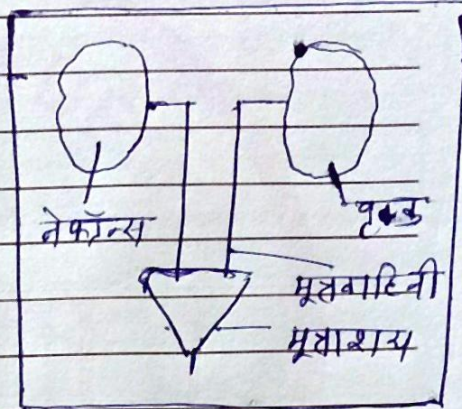 नेफॉन्स
वृक्क
मूत्रवाहिनी
मूत्राशय